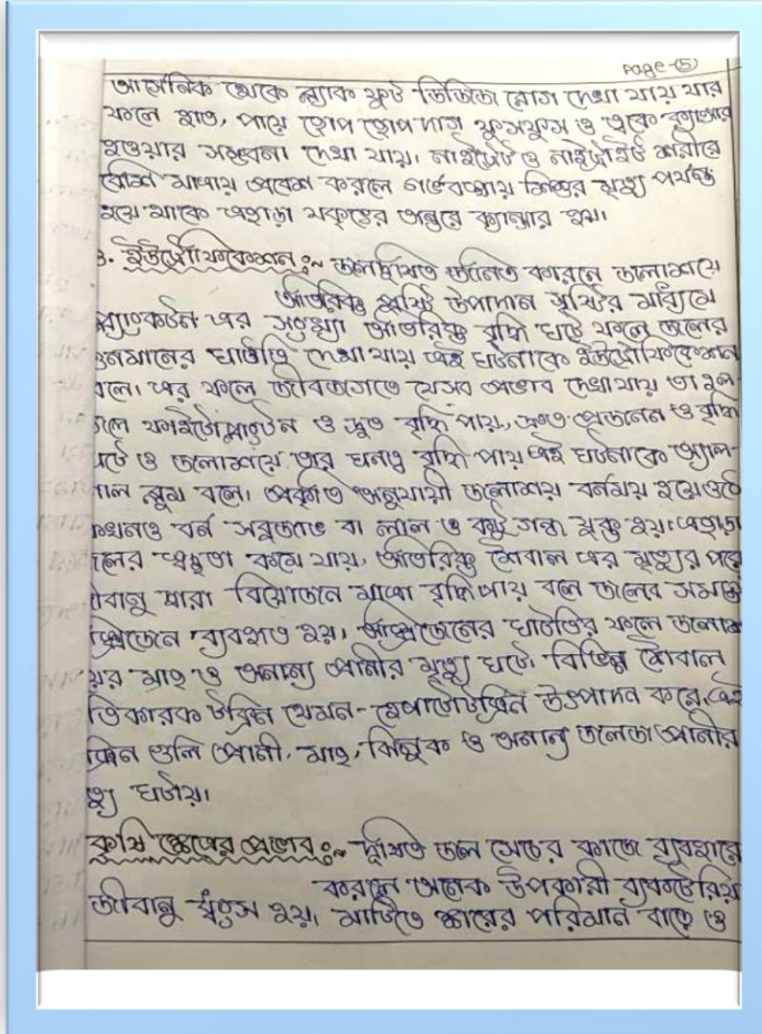 Page-(5)
আর্সেনিক থেকে ব্ল্যাক ফুট ডিজিজ রোগ দেখা যায় যার
ফলে হাত, পায়ে ছোপ ছোপ দাগ ফুসফুস ও ত্বকে ক্যান্সার
হওয়ার সম্ভবনা দেখা যায়। নাইট্রেট ও নাইট্রাইট শরীরে
বেশি মাত্রায় প্রবেশ করলে গর্ভবস্থায় শিশুর মৃত্যু পর্যন্ত
হয়ে থাকে এছাড়া যকৃতের অন্ত্রে ক্যান্সার হয়।
3. ইউট্রোফিকেশন :~ জলদূষিত জনিত কারনে জলাশয়ে
অতিরিক্ত পুষ্টি উপাদান সৃষ্টির মাধ্যমে
প্ল্যাংকটন এর সংখ্যা অতিরিক্ত বৃদ্ধি ঘটে ফলে জলের
গুনমানের ঘাটতি দেখা যায় এই ঘটনাকে ইউট্রোফিকেশন
বলে। এর ফলে জীবজগতে যেসব প্রভাব দেখা যায় তা হল
জলে ফাইটোপ্লাংটন ও দ্রুত বৃদ্ধি পায়, দ্রুত প্রজনন ও বৃদ্ধি
ঘটে ও জলাশয়ে তার ঘনত্ব বৃদ্ধি পায় এই ঘটনাকে অ্যাল-
গাল ব্লুম বলে। প্রকৃতি অনুযায়ী জলাশয় বর্নময় হয়ে ওঠে
কখনও বর্ন সবুজাভ বা লাল ও কটু গন্ধ যুক্ত হয়। এছাড়া
জলের স্বচ্ছতা কমে যায়, অতিরিক্ত শৈবাল এর মৃত্যুর পরে
জীবানু দ্বারা বিয়োজনে মাত্রা বৃদ্ধি পায় বলে জলের সমস্ত
অক্সিজেন ব্যবহৃত হয়। অক্সিজেনের ঘাটতির ফলে জলাশ
য়ের মাছ ও অনান্য প্রানীর মৃত্যু ঘটে। বিভিন্ন শৈবাল
ক্ষতিকারক টক্সিন যেমন- হেপাটোটক্সিন উৎপাদন করে, এই
টক্সিন গুলি প্রানী, মাছ, ঝিনুক ও অনান্য জলজ প্রানীর
মৃত্যু ঘটায়।
কৃষি ক্ষেত্রে প্রভাব :~ দূষিত জল সেচের কাজে ব্যবহারে
করলে অনেক উপকারী ব্যাকটেরিয়া
জীবানু ধ্বংস হয়। মাটিতে ক্ষারের পরিমান বাড়ে ও